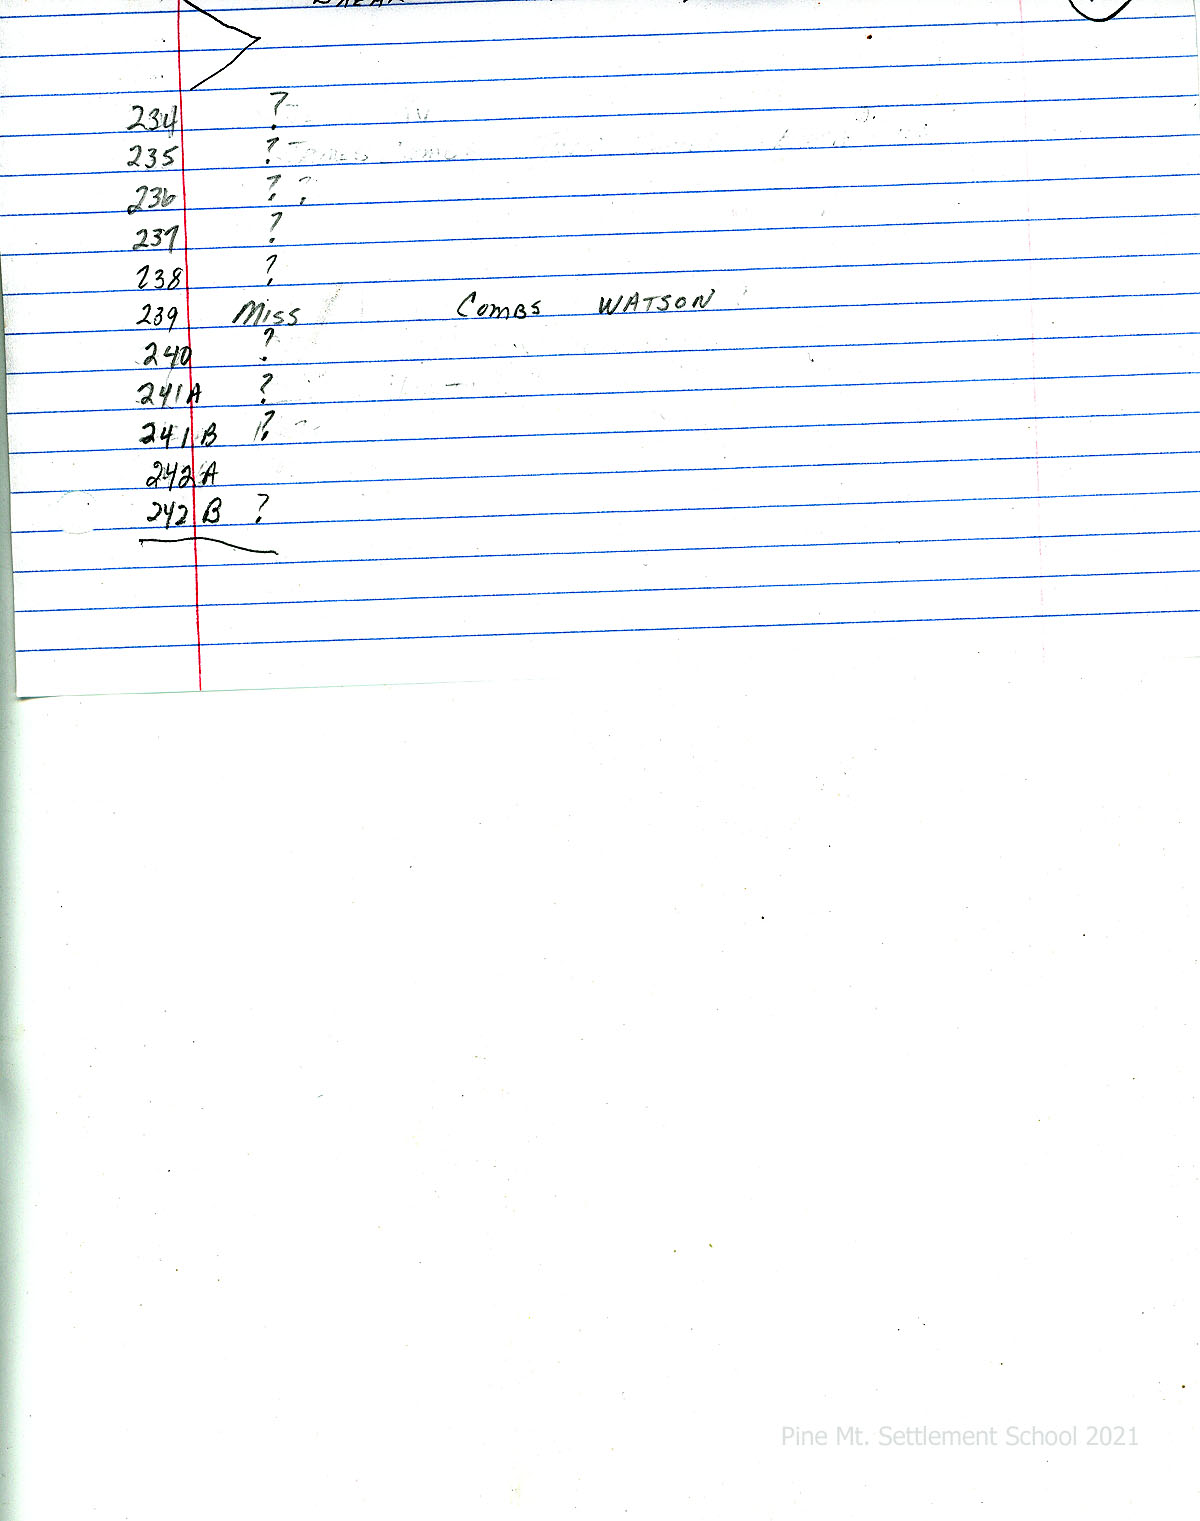 234 ?
235 ?
236 ? ?
237 ?
238 ?
239 Miss Combs WATSON
240 ?
241A ?
241B ?
242A
242B ?
Pine Mt. Settlement School 2021